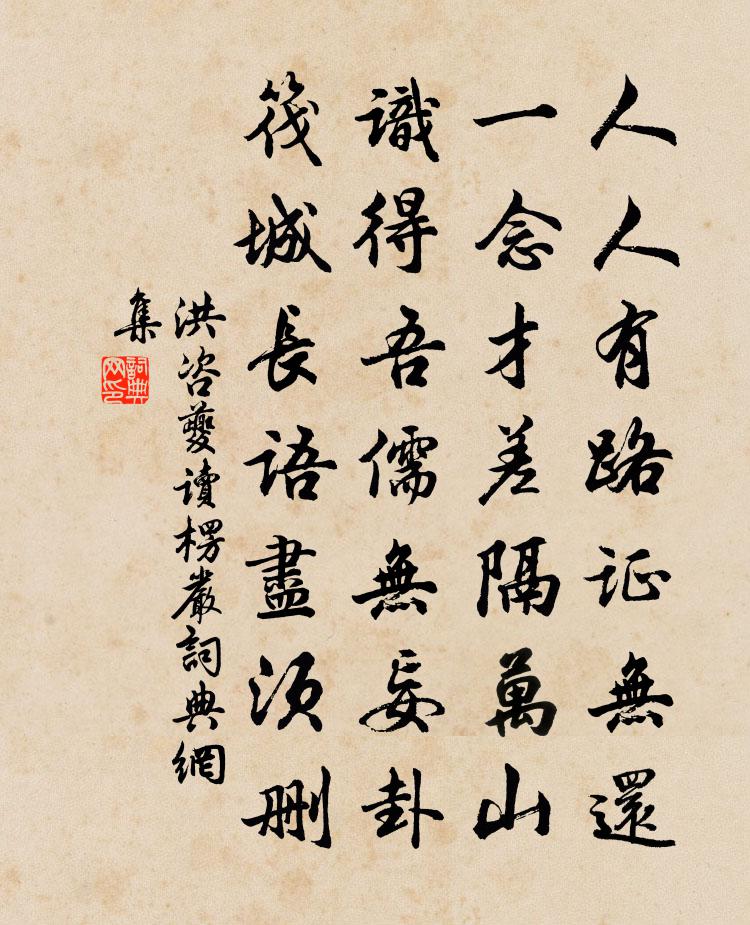 人人有路证無還
一念才差隔萬山
識得吾儒無妄卦
筏城長語盡須刪
洪咨夔讀楞嚴詞典網
集
詞典
网印